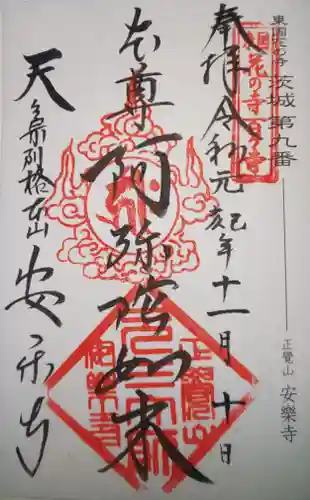 東国花の寺 茨城 第九番
正覺山 安樂寺
奉拝 令和元己亥年十一月十日
花の寺百ヶ寺
本尊 阿弥陀如来
天台宗別格本山 安楽寺